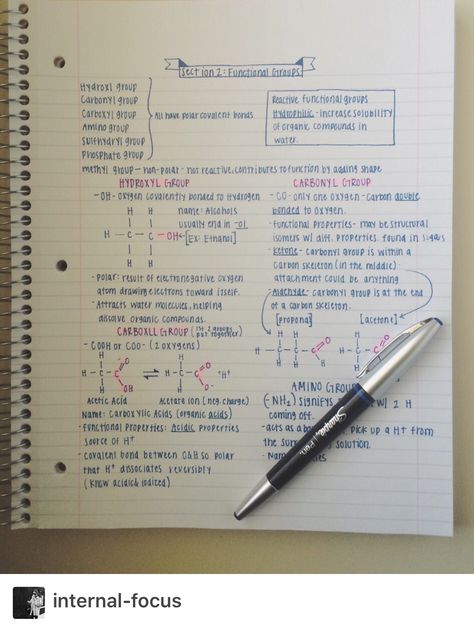 Section 2: Functional Groups
Hydroxyl group
Carbonyl group
Carboxyl group
Amino group
Sulfhydryl group
Phosphate group
All have polar covalent bonds
Reactive functional groups
Hydrophilic - increase solubility
of organic compounds in
water.
methyl group - non-polar - not reactive, contributes to function by adding shape
HYDROXYL GROUP
-OH- oxygen covalently bonded to Hydrogen
H H
H - C - C - OH
H H
name: Alcohols
usually end in -ol
[Ex: Ethanol]
- Polar: result of electronegative oxygen
atom drawing electrons toward itself.
- Attracts water molecules, helping
dissolve organic compounds.
CARBOXLL GROUP (1st 2 groups
put together)
- COOH or COO- (2 oxygens)
H
H - C - C
H
O
OH
⇌
H
H - C - C
H
O
O-
+H+
Acetic Acid
Acetate ion (neg. charge)
Name: Carboxylic Acids (organic acids)
- Functional Properties: Acidic properties
source of H+
- covalent bond between O&H so polar
that H+ dissociates reversibly
(know acidic & iodized)
CARBONYL GROUP
- CO - only one oxygen - Carbon double
bonded to oxygen.
- functional properties - may be structural
isomers w/ diff. properties. found in sugars
- Ketone - Carbonyl group is within a
carbon skeleton (in the middle)
attachment could be anything
- Aldehyde - carbonyl group is at the end
of a carbon skeleton.
[propona]
[acetone]
H H
H - C - C - C
H H
O
H
H
H - C - C
H
O
AMINO GROUP
(-NH2) signifys w/ 2 H
coming off.
- acts as a pick up a H+ from
the solution.
- Nam
Sharpie Pen
internal-focus